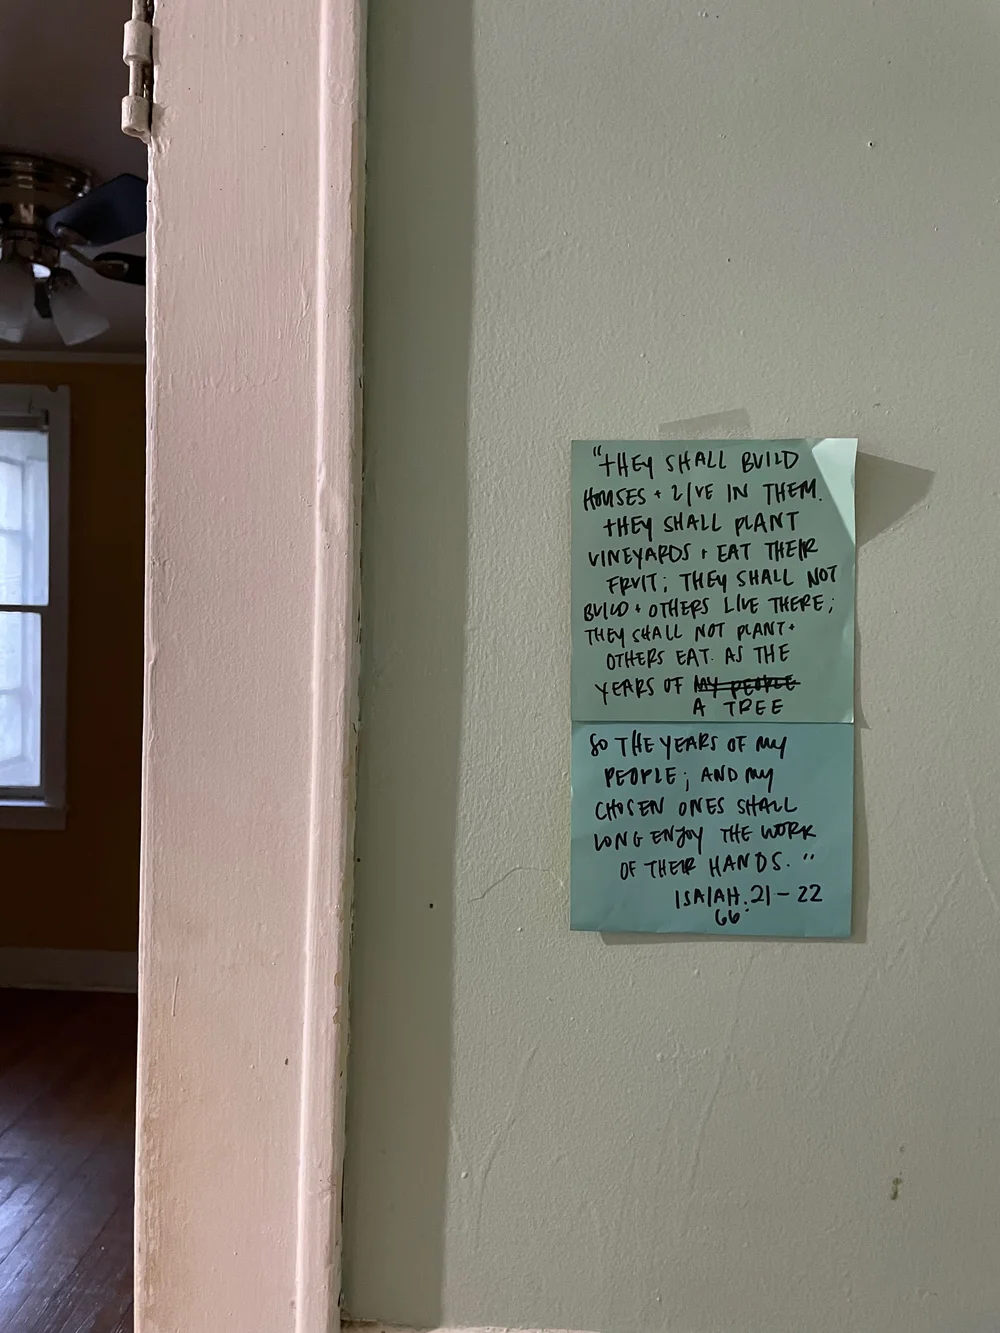 "THEY SHALL BUILD
HOUSES + LIVE IN THEM.
THEY SHALL PLANT
VINEYARDS + EAT THEIR
FRUIT; THEY SHALL NOT
BUILD + OTHERS LIVE THERE;
THEY SHALL NOT PLANT +
OTHERS EAT. AS THE
YEARS OF MY PEOPLE
A TREE
SO THE YEARS OF MY
PEOPLE; AND MY
CHOSEN ONES SHALL
LONG ENJOY THE WORK
OF THEIR HANDS."
ISAIAH. 21-22
66